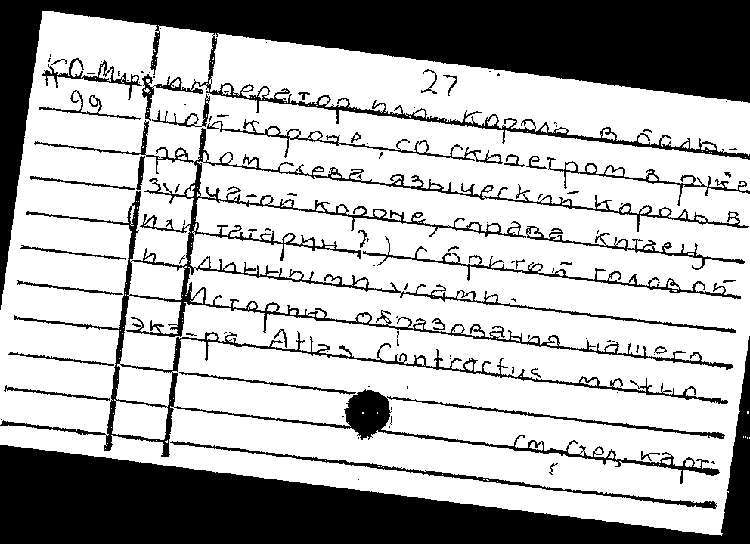 27
КО-Мир8 император или король в боль-
99 шой короне, со скипетром в руке
рядом слева языческий король в
зубчатой короне, справа китаец
(или татарин?) с бритой головой
и длинными усами.
Историю образования нашего
экз-ра Atlas Contractus можно
см. след. карт.